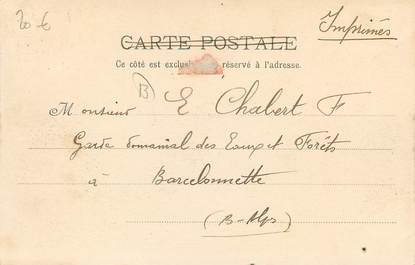 20 €
Imprimés
CARTE POSTALE
Ce côté est exclusivement réservé à l'adresse.
B
Monsieur E Chabert F
Garde domanial des Eaux et Forêts
à Barcelonnette
(B-Alps)